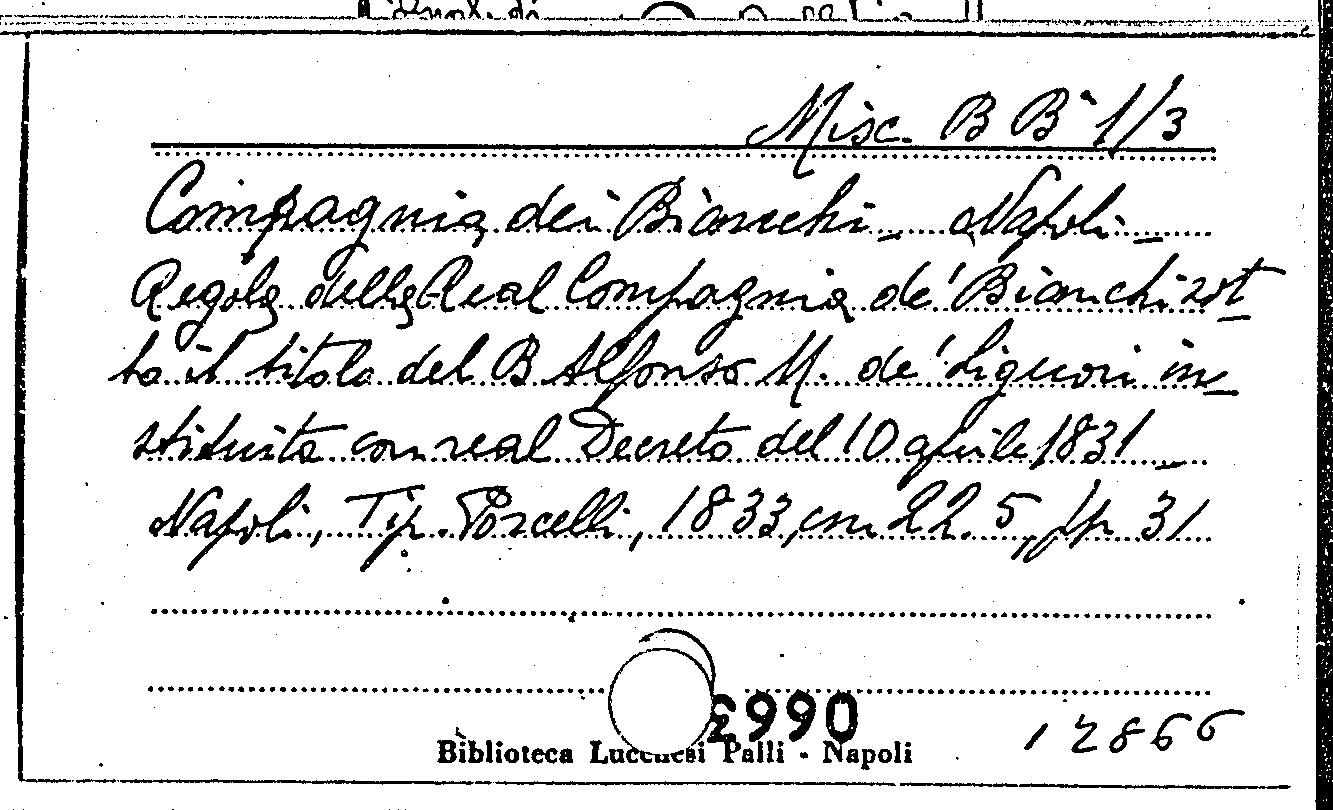 Misc. B B 1/3
Compagnia dei Bianchi - Napoli -
Regola della Real Compagnia de' Bianchi sot-
to il titolo del B Alfonso M. de' Liguori in-
stituita con real Decreto del 10 aprile 1831 -
Napoli, Tip. Porcelli, 1833, cm 22.5, pp 31
990
12866
Biblioteca Lucchesi Palli - Napoli